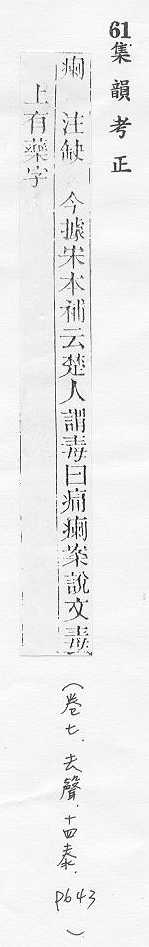 61集韻考正
瘌 注缺 今據宋本補云楚人謂毒曰痛瘌案說文毒
上有藥字
(卷七．去聲．十四泰．p643)